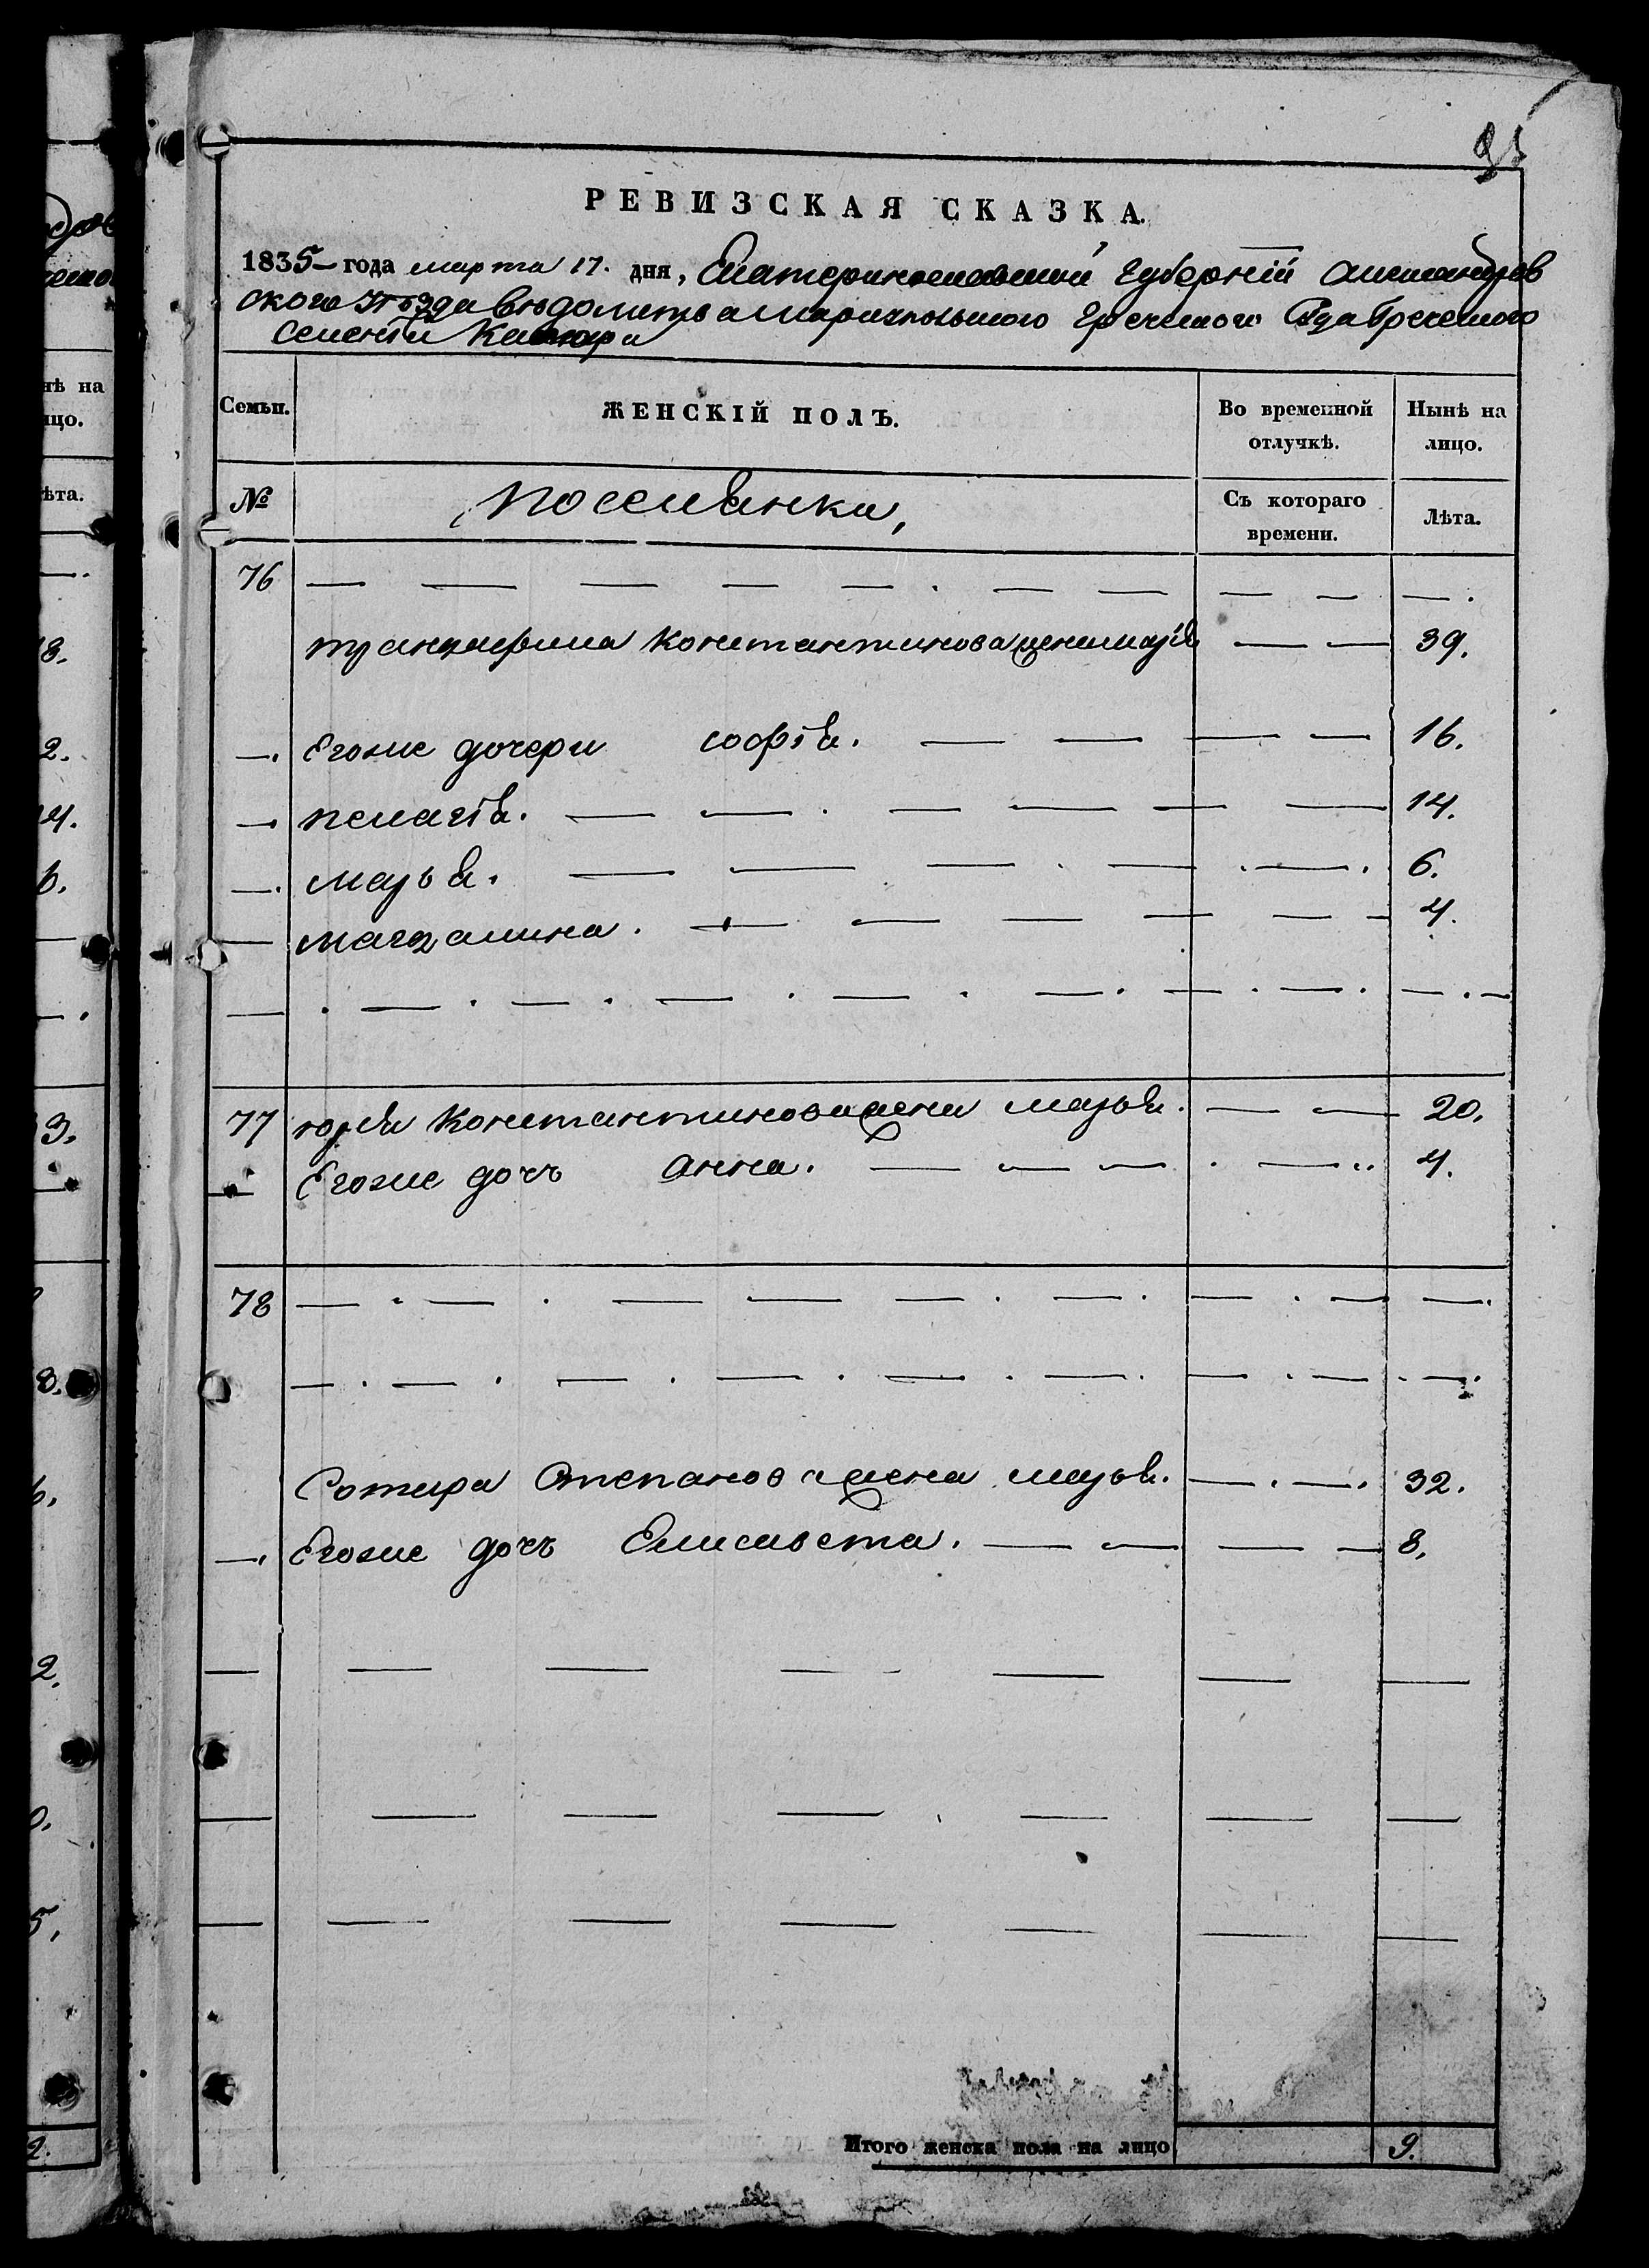 95
РЕВИЗСКАЯ СКАЗКА.
1835 года марта 17. дня, Екатеринославской губерніи Александров
ского уѣзда вѣдомства мариупольского греческого Суда греческого
селенія
Семьи. ЖЕНСКІЙ ПОЛЪ. Во временной отлучкѣ. Нынѣ на лицо.
№ поселянки, Съ котораго времени. Лѣта.
76 — — — — — . — — — — — .
Константинова жена марья — — 39.
—. Егоже дочери софія. — — — — 16.
— пелагія. — — . — — — — 14.
—. марья. — — — . — . — . 6.
— магдалина. — — — — — — 4.
— . — . — . — . — . — . — . — . — . —
77 юрья Константинова жена марья. — — 20.
— Егоже дочь анна. — — — . — .. 4.
78 — . — . — — — . — . — . — — .
— . — . — . — . — . — . — . — . — .
Сотира Степанова жена марья. — . — . 32.
—. Егоже дочь Елисавета. — — — — 8.
— — — — — — —
— — — — — — —
— — — — — — —
Итого женска пола на лицо 9.
нѣ на
ицо.
ѣта.
8.
2.
4.
6.
3.
8.
6.
2.
0.
5.
2.